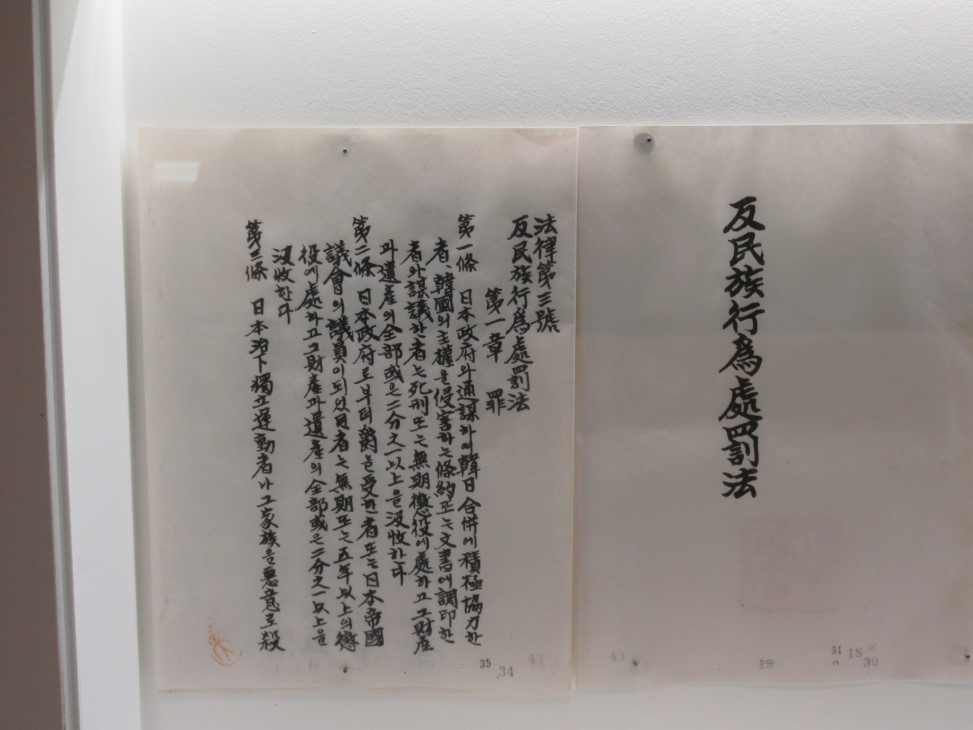 反民族行爲處罰法
法律第三號
反民族行爲處罰法
第一章 罪
第一條 日本政府와通謀하여韓日合併에積極協力한
者、韓國의主權을侵害하는條約또는文書에調印한
者와謀議한者는死刑또는無期懲役에處하고그財産
과遺産의全部或은二分之一以上을沒收한다
第二條 日本政府로부터爵을受한者또는日本帝國
議會의議員이되었던者는無期또는五年以上의懲
役에處하고그財産과遺産의全部或은二分之一以上을
沒收한다
第三條 日本治下獨立運動者나그家族을悪意로殺
35
34
31
18
30